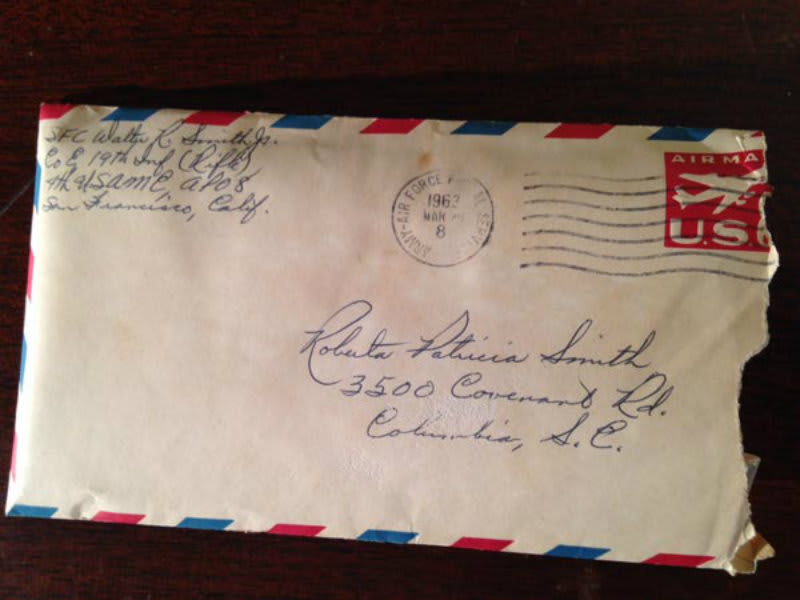 SFC Walter R. Smith Jr.
Co E, 19th Inf (Rifle)
APO 8
San Francisco, Calif.
ARMY-AIR FORCE POSTAL SERVICE
1963
MAR
8
AIRMA
U.S.
Roberta Patricia Smith
3500 Covenant Rd.
Columbia, S.C.